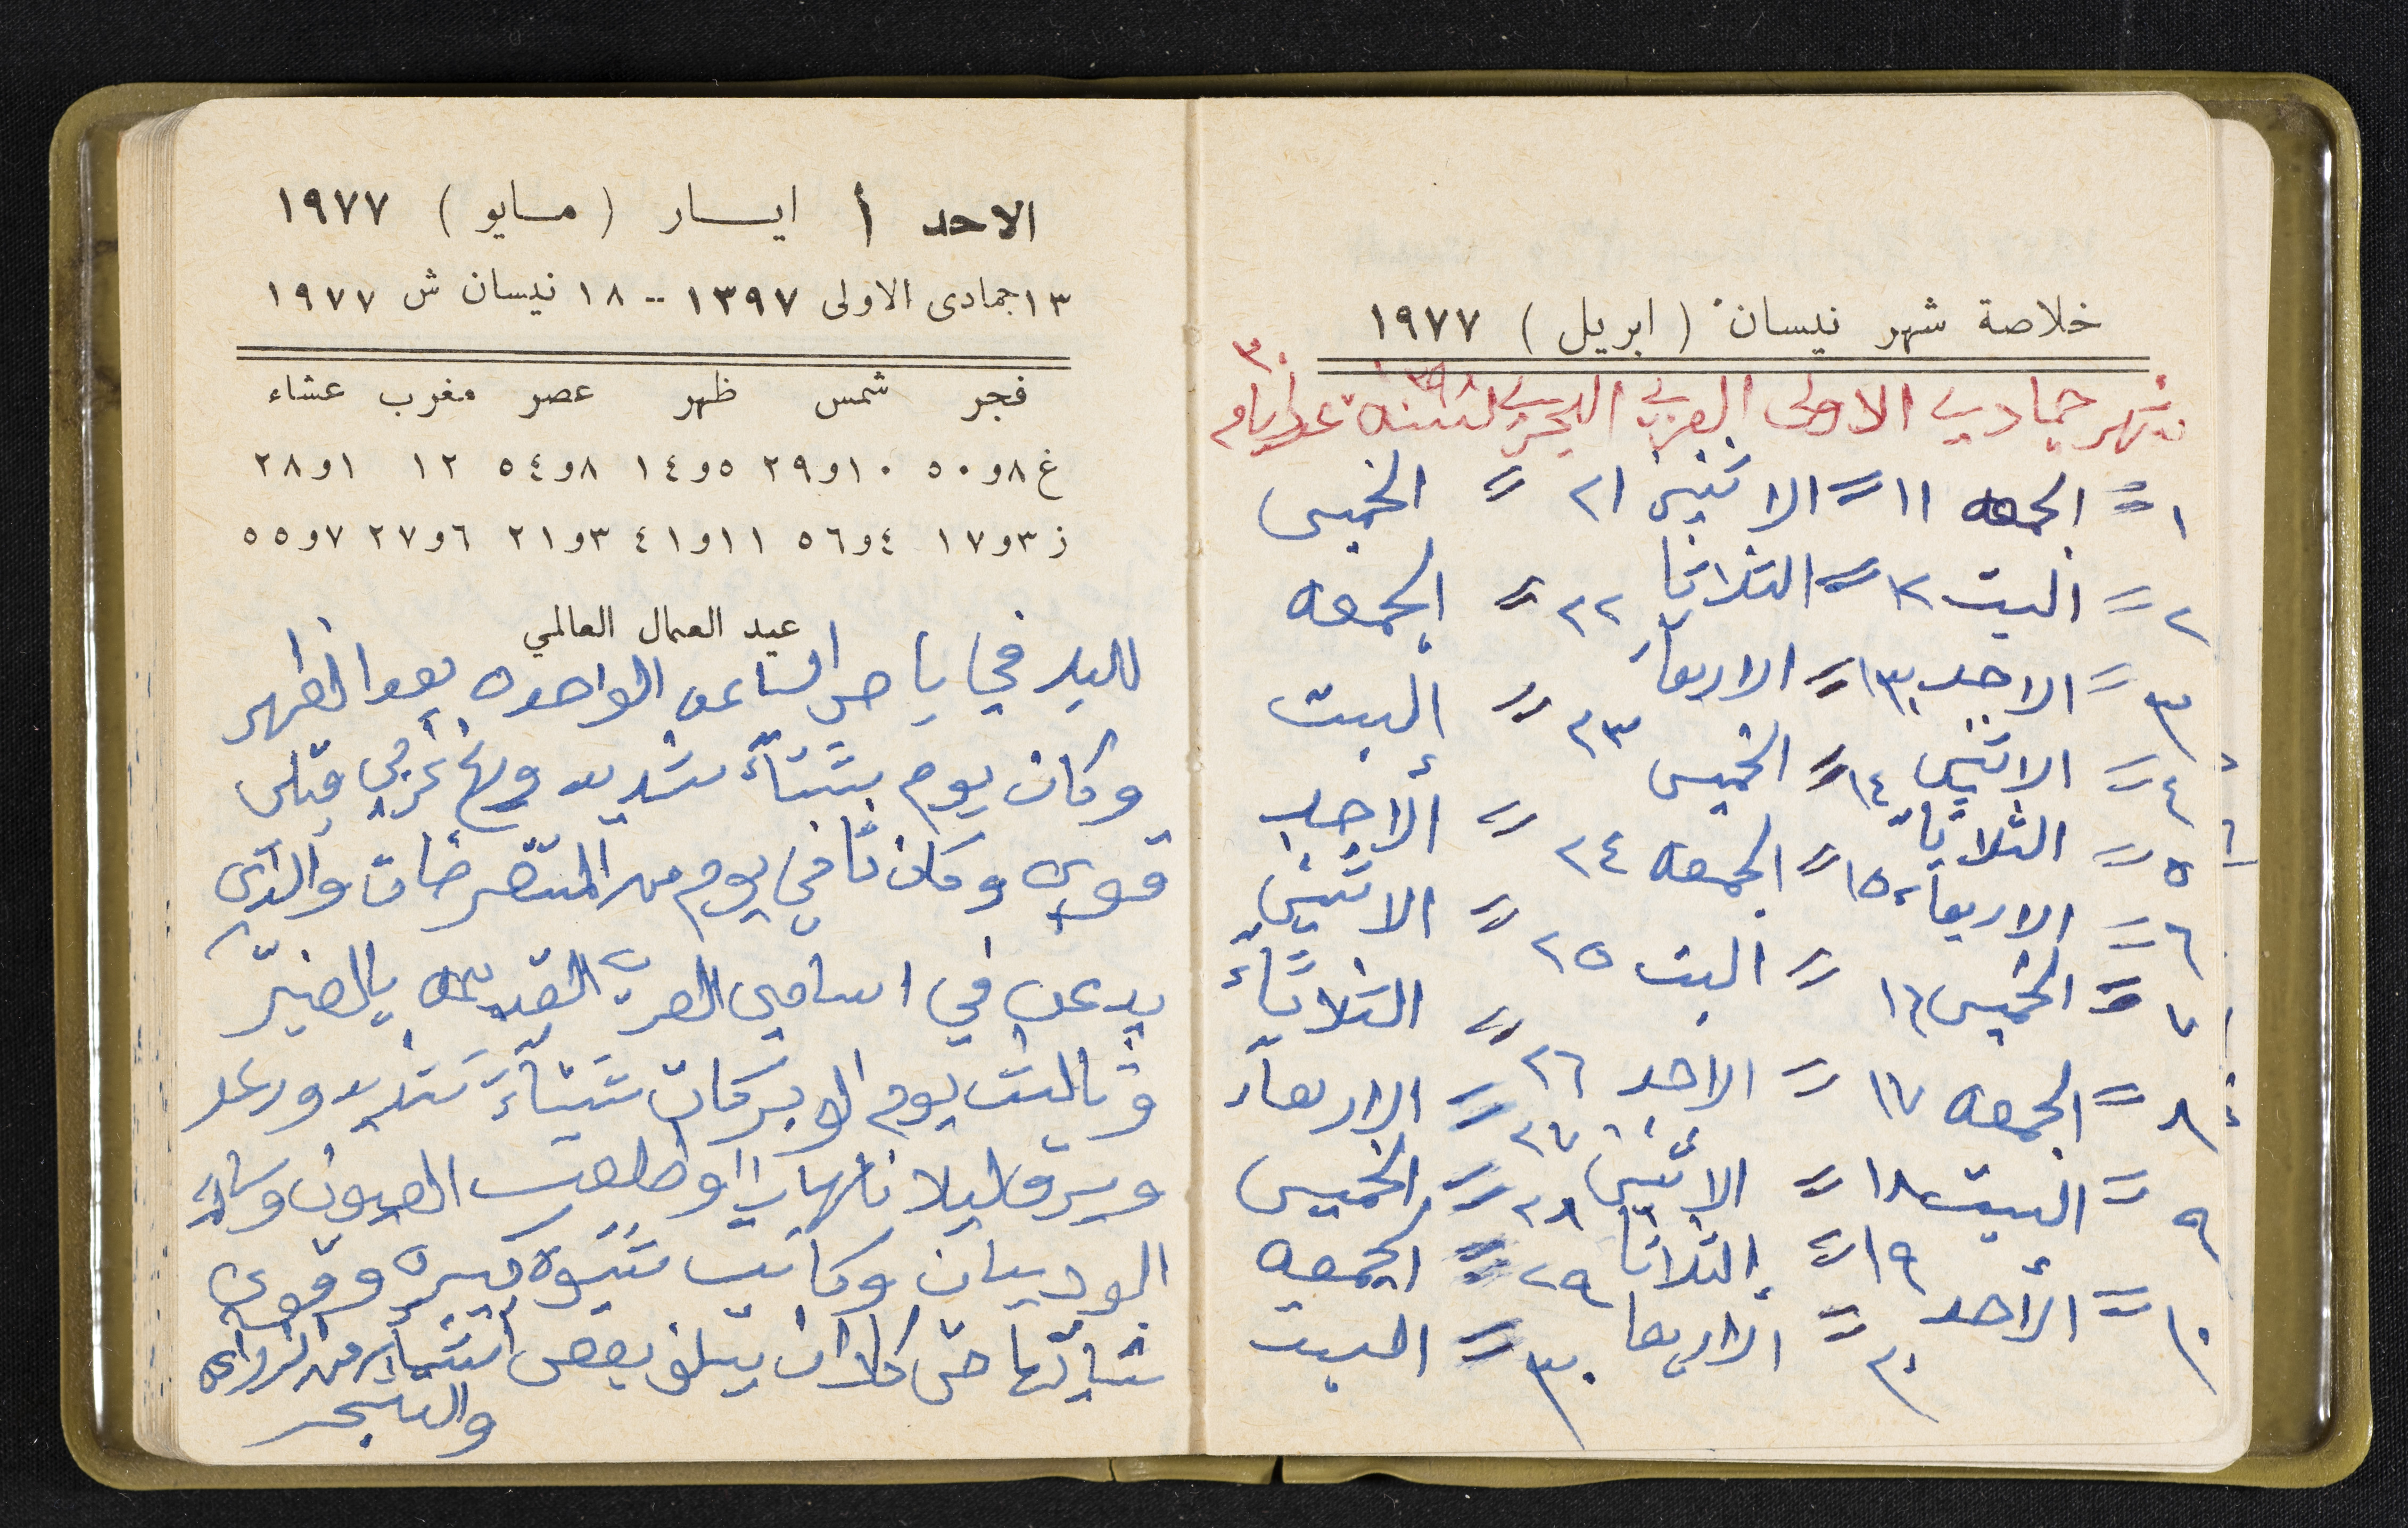 خلاصة شهر نيسان (ابريل) ١٩٧٧
٣٠
شهر جمادي الاولى العربي الهجري لسنة ١٣٩٨ عد ايام
١ = الجمعه ١١ = الاثنين ٢١ = الخميس
٢ = السبت ١٢ = الثلاثا ٢٢ = الجمعه
٣ = الاحد ١٣ = الاربعاء ٢٣ = السبت
٤ = الاثنين ١٤ = الخميس ٢٤ = الأحد
٥ = الثلاثاء ١٥ = الجمعه ٢٥ = الاثنين
٦ = الاربعاء ١٦ = السبت ٢٦ = الثلاثاء
٧ = الخميس ١٧ = الاحد ٢٧ = الاربعاء
٨ = الجمعه ١٨ = الاثنين ٢٨ = الخميس
٩ = السبت ١٩ = الثلاثا ٢٩ = الجمعه
١٠ = الأحد ٢٠ = الاربعا ٣٠ = السبت
الاحد ١ ايـــار (مـايو) ١٩٧٧
١٣ جمادى الاولى ١٣٩٧ -- ١٨ نيسان ش ١٩٧٧
فجر شمس ظهر عصر مغرب عشاء
غ ٨و٥٠ ١٠و٢٩ ٥و١٤ ٨و٥٤ ١٢ ١و٢٨
ز ٣و١٧ ٤و٥٦ ١١و٤١ ٣و٢١ ٦و٢٧ ٧و٥٥
عيد العمال العالمي
للبلد في باص الساعه الواحده بعد الظهر
وكان يوم بشتاء شديد وريح غربي قبلي
قوي وكان ثاني يوم من المستقرضات والذي
يدعى في اسامي العرب القديمه بالصنبر
وثالث يوم الو بركات شتاء شديد ورعد
وبرق ليلا نهارا وطلعت العيون وسالة
الوديان وكانت شتوه كبيره وقوي
شتائها حتى كاد ان يتلف بعض اشياء من الزراعه
والشجر